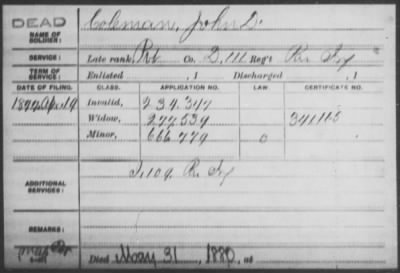 DEAD
NAME OF SOLDIER: Coleman, John D.
SERVICE: Late rank, Pvt Co. D, 111 Reg't Pa. Inf
TERM OF SERVICE: Enlisted , 1 Discharged , 1
DATE OF FILING. CLASS. APPLICATION NO. LAW. CERTIFICATE NO.
Invalid, 234.347
Widow, 277.539
Minor, 666.779 0
ADDITIONAL SERVICES: 109 Pa. Inf
REMARKS:
Died May 31, 1880, at